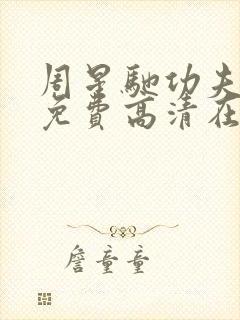 周星驰功夫
免费高清在
詹童童